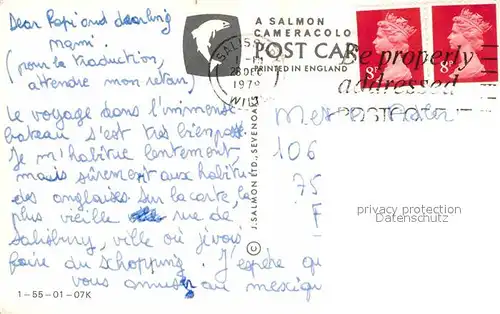 Dear Papi and dearling
mami.
(pour la traduction,
attendre mon retour)
Le voyage dans l'immense
bateau s'est très bien passé
Je m'habitue lentement,
mais sûrement aux habitu
des anglaises. Sur la carte, la
plus vieille rue de
Salisbury, ville où j'vais
faire du schopping. J'espère qu
vous amuser au mexiqu
1-55-01-07K
A SALMON
CAMERACOLO
POST CAR
PRINTED IN ENGLAND
© J. SALMON LTD., SEVENOAKS
SALISBURY
28 DEC
1979
WILTS
Be properly
addressed
POSTCODE
8P
8P
106
75
F
privacy protection
Datenschutz